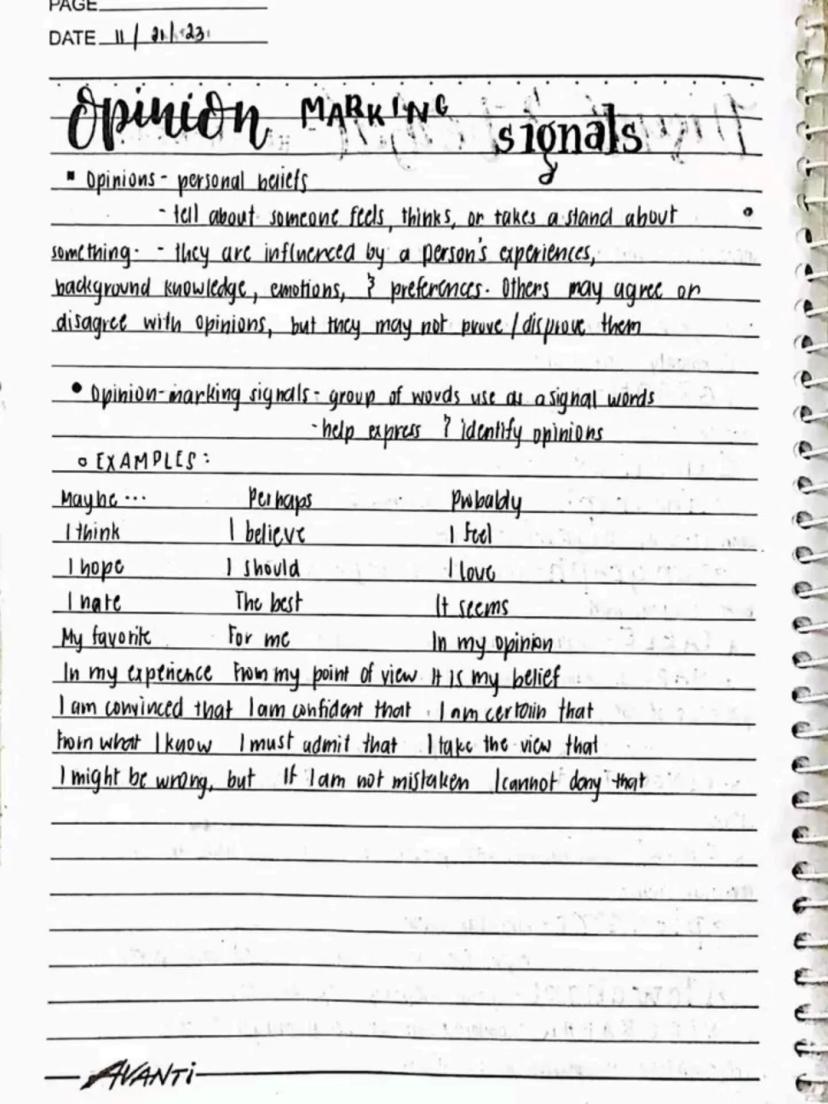 PAGE
DATE 11/21/23
Opinion MARKING signals
▪ Opinions - personal beliefs
- tell about someone feels, thinks, or takes a stand about
something. - they are influenced by a person's experiences,
background knowledge, emotions, & preferences. Others may agree or
disagree with opinions, but they may not prove / disprove them
• Opinion-marking signals - group of words use as a signal words
- help express & identify opinions
o EXAMPLES:
Maybe... Perhaps Probably
I think I believe I feel
I hope I should I love
I hate The best It seems
My favorite For me In my opinion
In my experience From my point of view It is my belief
I am convinced that I am confident that I am certain that
From what I know I must admit that I take the view that
I might be wrong, but If I am not mistaken I cannot deny that
AVANTi